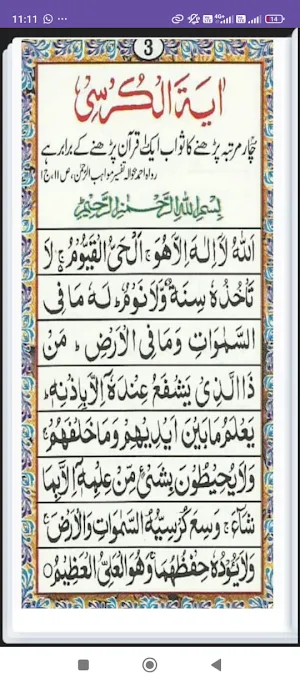 11:11
4G+
14
3
اٰیَۃُ الْکُرْسِیْ
چار مرتبہ پڑھنے کا ثواب ایک قرآن پڑھنے کے برابر ہے
رواہ احمد بحوالہ تفسیر مواہب الرحمٰن، ص ۱۱، ج ۱
بِسْمِ اللّٰہِ الرَّحْمٰنِ الرَّحِیْمِ
اَللّٰہُ لَاۤ اِلٰہَ اِلَّا ھُوَ ۚ اَلْحَیُّ الْقَیُّوْمُ ۚ لَا
تَاْخُذُہٗ سِنَۃٌ وَّلَا نَوْمٌ ؕ لَہٗ مَا فِی
السَّمٰوٰتِ وَمَا فِی الْاَرْضِ ؕ مَنْ
ذَا الَّذِیْ یَشْفَعُ عِنْدَہٗۤ اِلَّا بِاِذْنِہٖ ؕ
یَعْلَمُ مَا بَیْنَ اَیْدِیْھِمْ وَمَا خَلْفَھُمْ ۚ
وَلَا یُحِیْطُوْنَ بِشَیْئٍ مِّنْ عِلْمِہٖۤ اِلَّا بِمَا
شَآءَ ۚ وَسِعَ کُرْسِیُّہُ السَّمٰوٰتِ وَالْاَرْضَ ۚ
وَلَا یَـُٔوْدُہٗ حِفْظُھُمَا ۚ وَھُوَ الْعَلِیُّ الْعَظِیْمُ ○